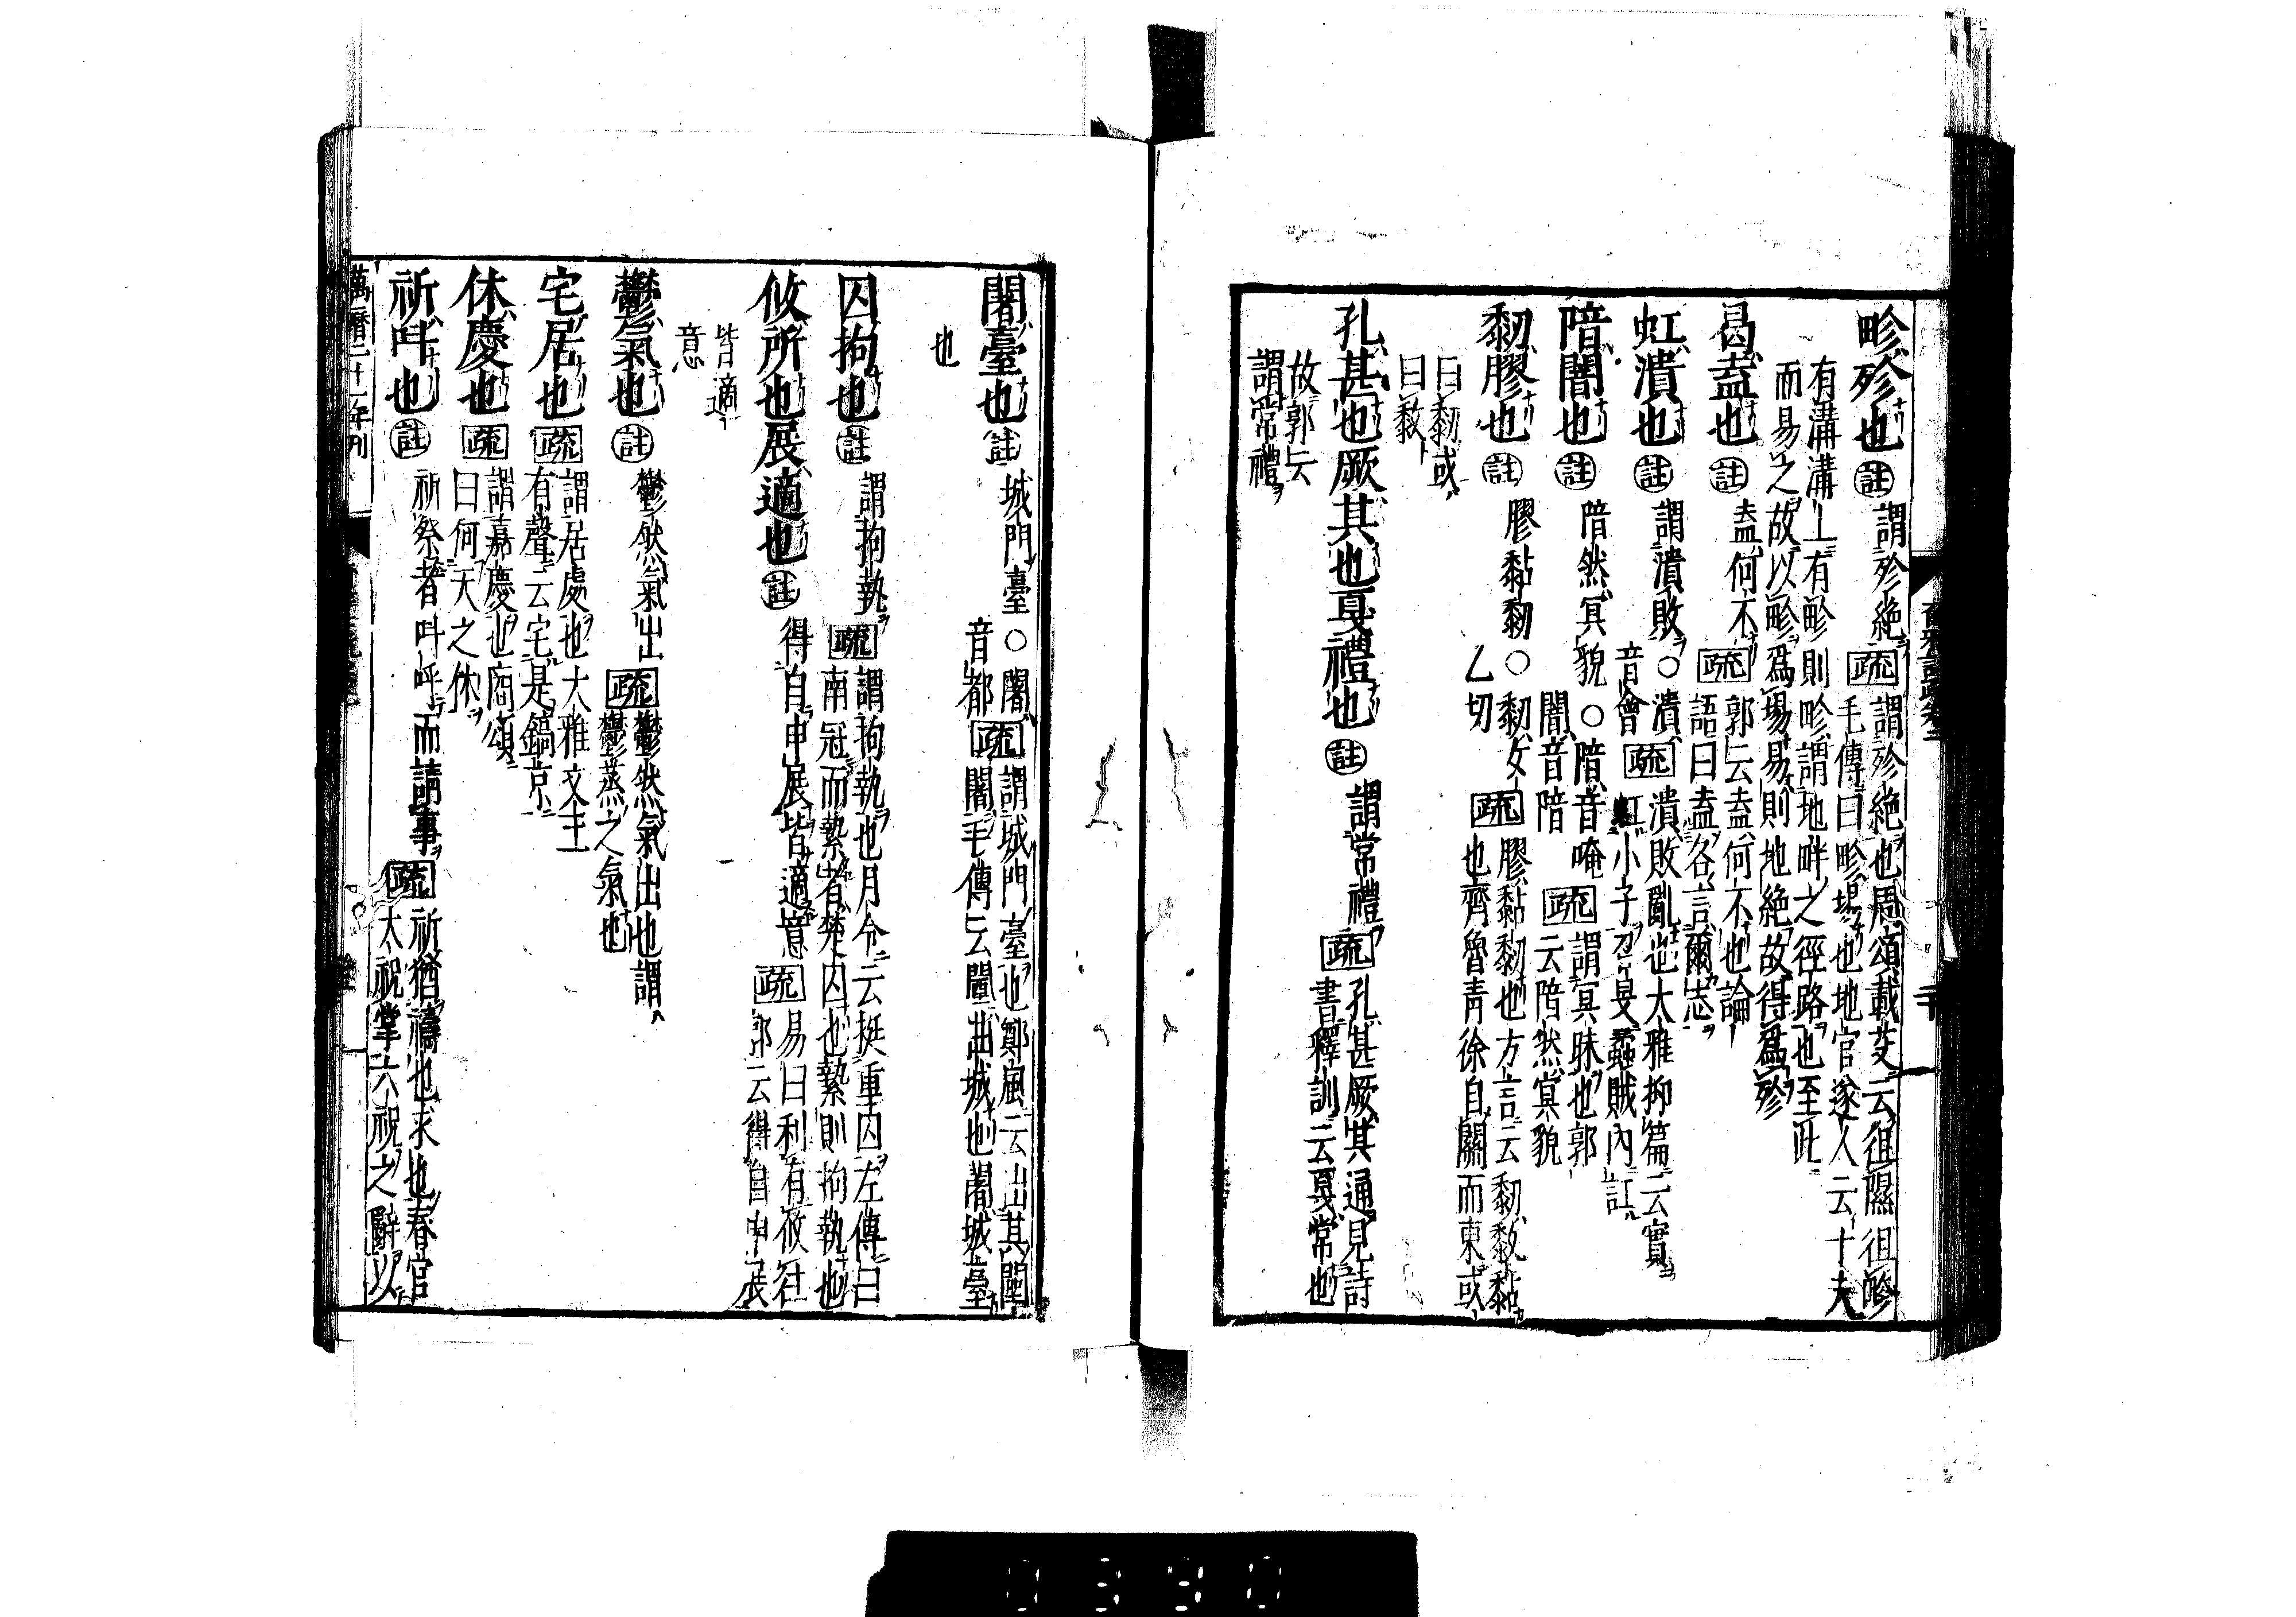 畛殄也註謂殄絶疏謂殄絶也周頌載芟云徂隰徂畛
毛傳曰畛埸也地官遂人云十夫
有溝溝上有畛則畛謂地畔之徑路也至此
而易之故以畛爲場易則地絶故得爲殄
曷盍也註盍何不疏郭云盍何不也論
語曰盍各言爾志
虹潰也註謂潰敗○潰音會疏潰敗亂也大雅抑篇云實
虹小子召旻蟊賊内訌
陪闇也註陪然冥貌○陪音唵
闇音陪疏謂冥昧也郭
云陪然冥貌
䵑膠也註膠黏䵑○䵑女
乙切疏膠黏䵑也方言云䵑𥻨黏
也齊魯青徐自關而東或
曰䵑或
曰𥻨
孔甚也厥其也戛禮也註謂常禮疏孔甚厥其通見詩
書釋訓云戛常也
故郭云
謂常禮
闍臺也註城門臺○闍
音都疏謂城門臺也鄭風云出其闉
闍毛傳云闉出城也闍城臺
也
囚拘也註謂拘執疏謂拘執也月令云挺重囚左傳曰
南冠而縶者楚囚也縶則拘執也
攸所也展適也註得自申展皆適意疏易曰利有攸往
郭云得自申展
皆適
意
鬱氣也註鬱然氣出疏鬱然氣出也謂
鬱蒸之氣也
宅居也疏謂居處也大雅文王
有聲云宅是鎬京
休慶也疏謂嘉慶也商頌
曰何天之休
祈叫也註祈祭者叫呼而請事疏祈猶禱也求也春官
太祝掌六祝之辭以
萬曆二十一年刊
0390